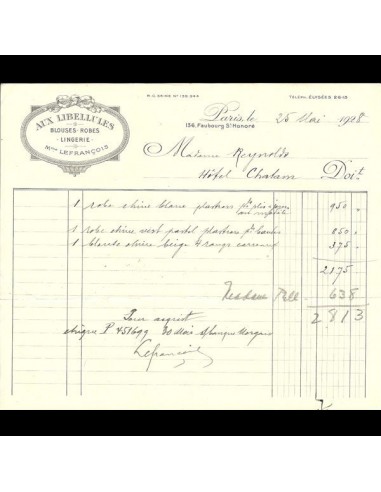 R.C. SEINE N° 139.344
TÉLÉPH. ÉLYSÉES 88-19
AUX LIBELLULES
BLOUSES - ROBES
- LINGERIE -
Mme LEFRANÇOIS
Paris, le 25 Mai 1928
136, Faubourg St Honoré
Madame Reynolds
Hôtel Chatam Doit
1 robe chine blanc plastron 950 "
1 robe chine vert pastel plastron 850 "
1 blouse chine beige 4 rangs carreaux 375 "
2175 "
Bill 638
2813
Pour acquit
chèque P 451699 30 Mai Morgan
Lefrançois